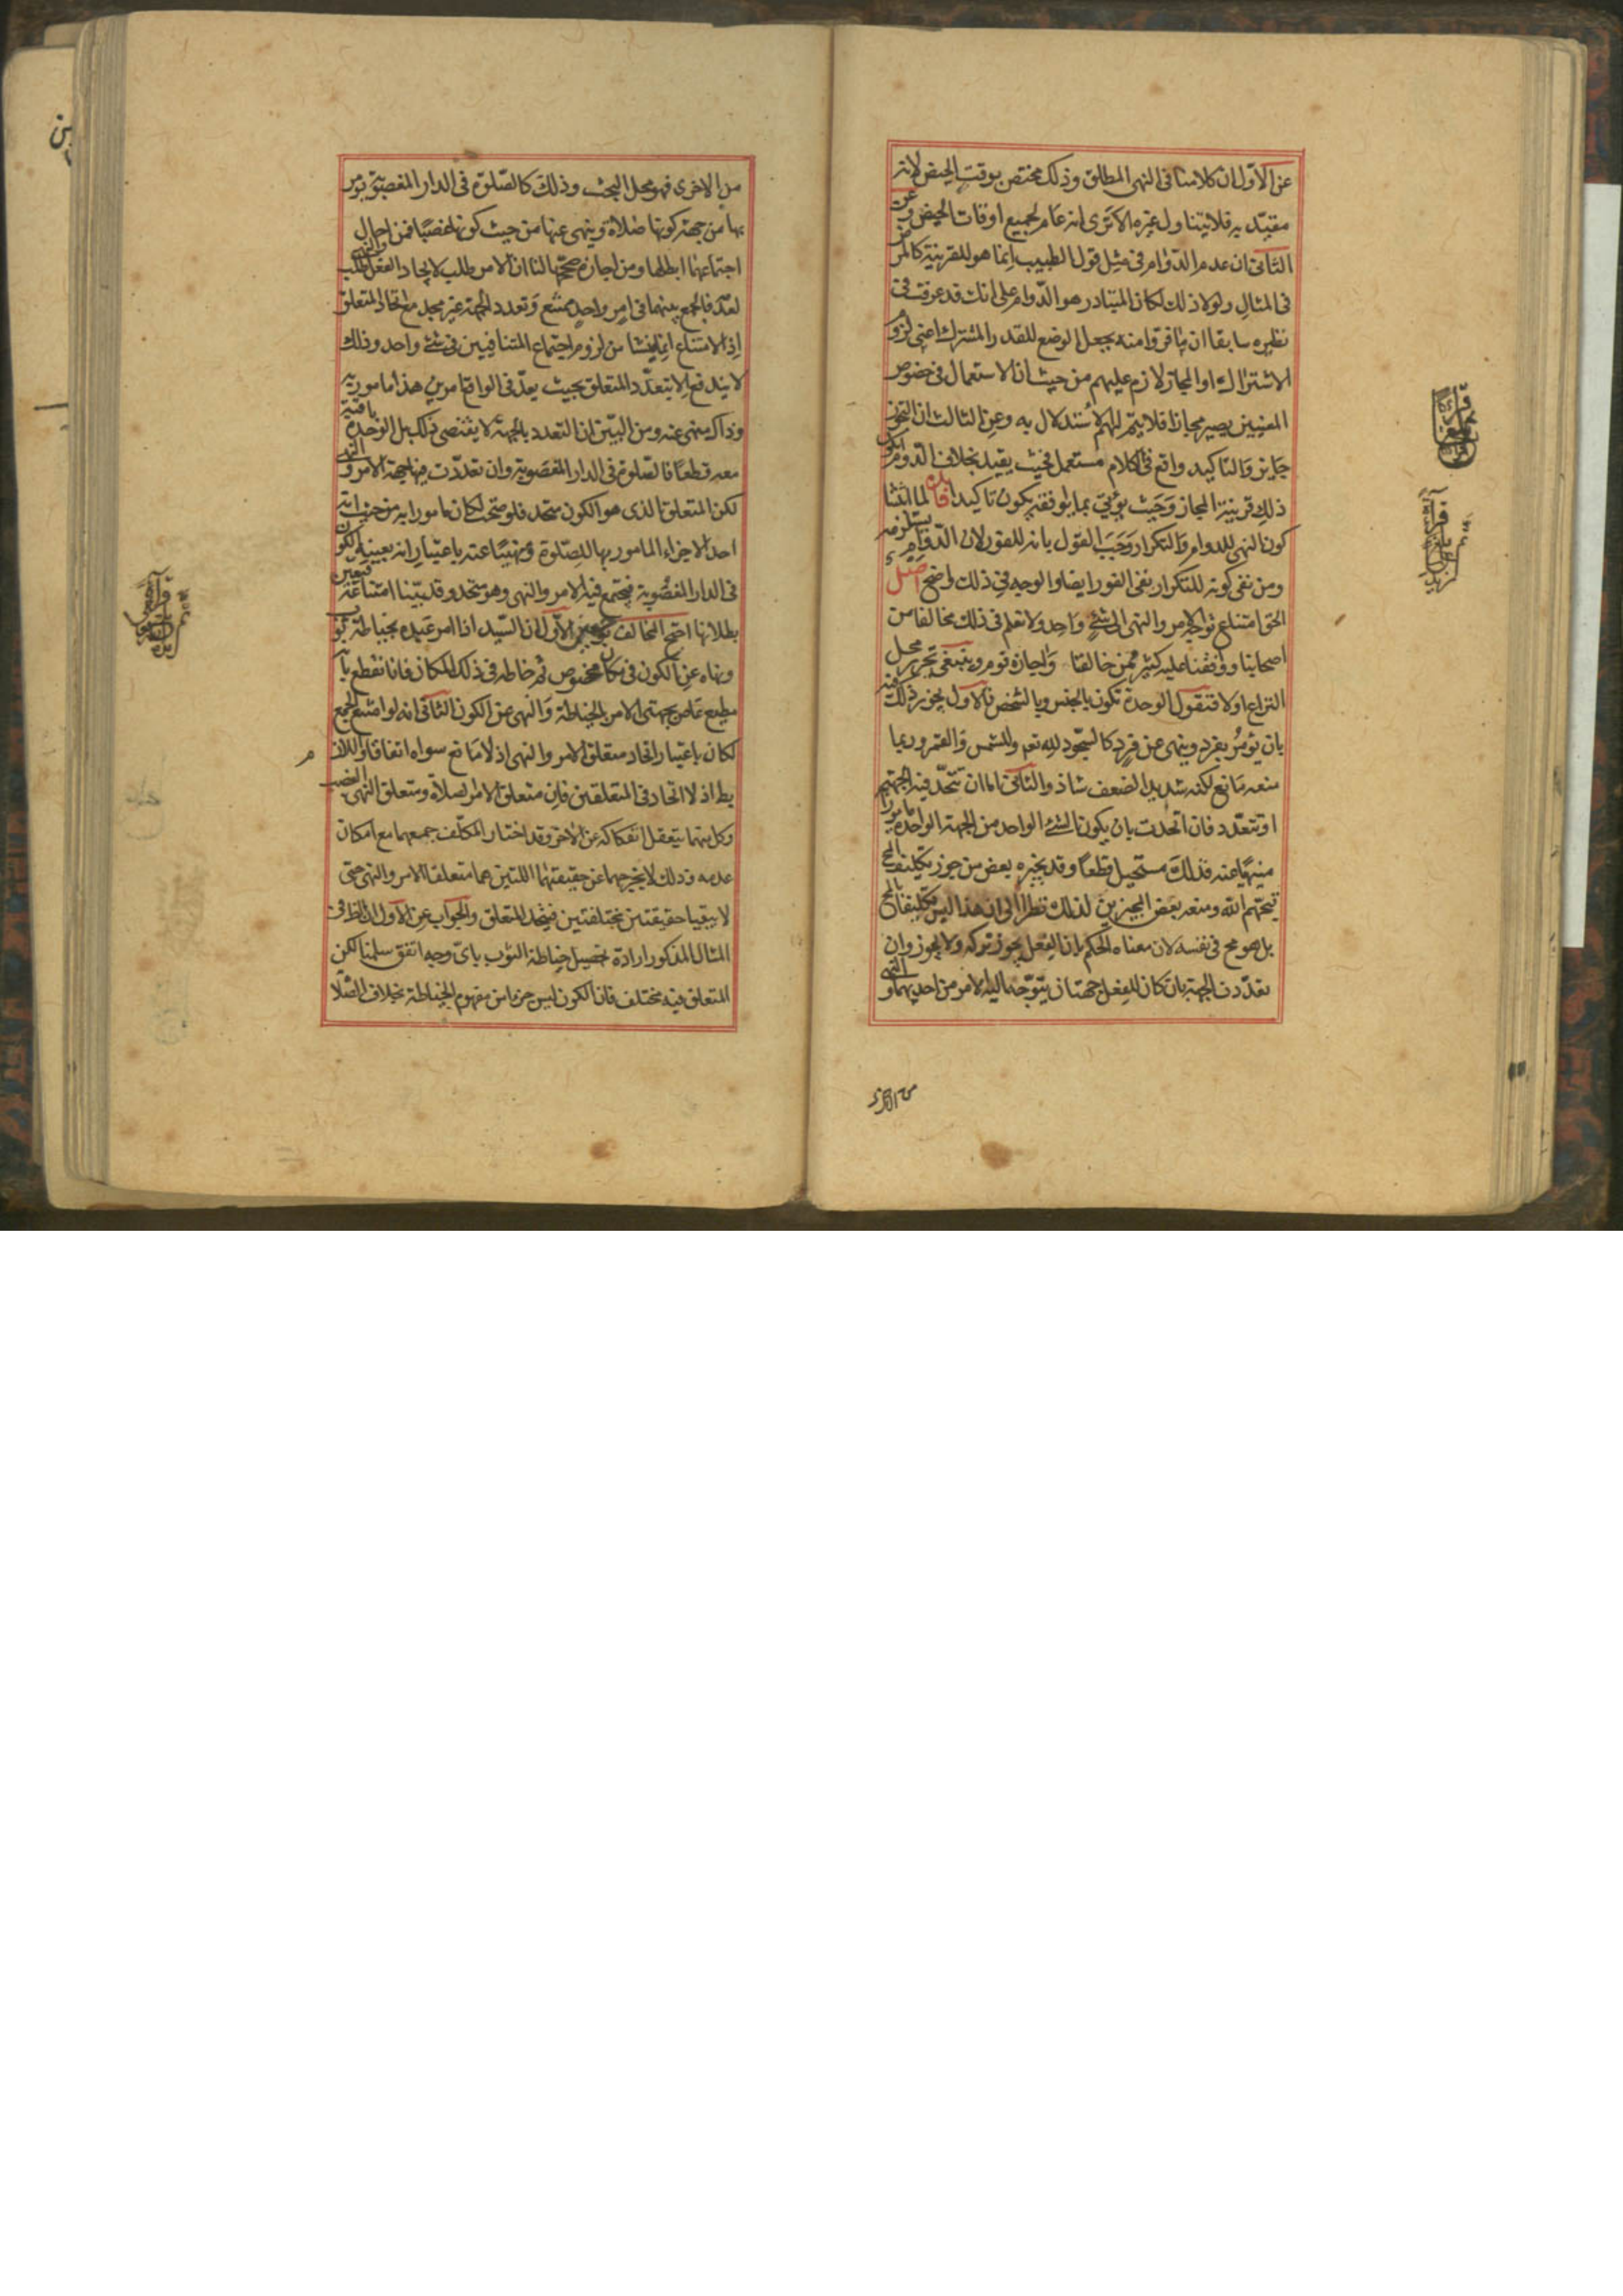 عن الاول ان كلامنا فى النهى المطلق وذلك مختص بوقت الحيض لانه
مقيد به فلا يتناول غيره الا ترى انه عام لجميع اوقات الحيض وعن
الثانى ان عدم الدوام فى مثل قول الطبيب انما هو للقرينة كالمرض
فى المثال ولولا ذلك لكان المتبادر هو الدوام على انك قد عرفت فى
نظيره سابقا ان ما فروا منه بجعل الوضع للقدر المشترك اعنى لزوم
الاشتراك او المجاز لازم عليهم من حيث ان الاستعمال فى خصوص
المعنيين يصير مجازا فلا يتم لهم الاستدلال به وعن الثالث ان التجوز
جايز والتاكيد واقع فى الكلام مستعمل فحيث يقيد بخلاف الدوام يكون
ذلك قرينة المجاز وحيث يؤتى بما يوافقه يكون تاكيدا فائدة لما اثبتنا
كون النهى للدوام والتكرار وجب القول بانه للفور لان الدوام يستلزمه
ومن نفى كونه للتكرار نفى الفور ايضا والوجه فى ذلك واضح اصل
الحق امتناع توجه الامر والنهى الى شئ واحد ولا نعلم فى ذلك مخالفا من
اصحابنا ووافقنا عليه كثير ممن خالفنا واجازه قوم وينبغى تحرير محل
النزاع اولا فنقول الوحدة تكون بالجنس وبالشخص فالاول يجوز ذلك فيه
بان يؤمر بفرد وينهى عن فرد كالسجود لله تعم وللشمس والقمر وربما
منعه مانع لكنه شديد الضعف شاذ والثانى اما ان تتحد فيه الجهة
او تتعدد فان اتحدت بان يكون الشئ الواحد من الجهة الواحدة مامورا
منهيا عنه فذلك مستحيل قطعا وقد يجيزه بعض من جوز تكليف المح
قبحهم الله ومنعه بعض المجيزين لذلك نظرا الى ان هذا ليس تكليفا بالمح
بل هو مح فى نفسه لان معناه الحكم بان الفعل يجوز تركه ولا يجوز وان
تعددت الجهة بان كان للفعل جهتان يتوجه اليه الامر من احديهما والنهى
من الاخرى
من الاخرى فهو محل البحث وذلك كالصلوة فى الدار المغصوبة يؤمر
بها من جهة كونها صلاة وينهى عنها من حيث كونها غصبا فمن احال
اجتماعهما ابطلها ومن اجازه صححها لنا ان الامر طلب لايجاد الفعل والنهى طلب
لعدمه فالجمع بينهما فى امر واحد ممتنع وتعدد الجهة غير مجد مع اتحاد المتعلق
اذ الامتناع انما ينشا من لزوم اجتماع المتنافيين فى شئ واحد وذلك
لا يندفع الا بتعدد المتعلق بحيث يعد فى الواقع امرين هذا مامور به
وذاك منهى عنه ومن البين ان التعدد بالجهة لا يقتضى ذلك بل الوحدة باقية
معه قطعا فالصلوة فى الدار المغصوبة وان تعددت فيها جهة الامر والنهى
لكن المتعلق الذى هو الكون متحد فلو صحت لكان مامورا به من حيث انه
احد الاجزاء المامور بها للصلوة ومنهيا عنه باعتبار انه بعينه الكون
فى الدار المغصوبة فيجتمع فيه الامر والنهى وهو متحد وقد بينا امتناعه فتعين
بطلانها احتج المخالف بوجهين الاول ان السيد اذا امر عبده بخياطة ثوب
ونهاه عن الكون فى مكان مخصوص ثم خاطه فى ذلك المكان فانا نقطع بانه
مطيع عاص بجهتى الامر بالخياطة والنهى عن الكون الثانى انه لو امتنع الجمع
لكان باعتبار اتحاد متعلق الامر والنهى اذ لا مانع سواه اتفاقا واللازم
بط اذ لا اتحاد فى المتعلقين فان متعلق الامر الصلاة ومتعلق النهى الغصب
وكل منهما يتعقل انفكاكه عن الاخر وقد اختار المكلف جمعهما مع امكان
عدمه وذلك لا يخرجهما عن حقيقتهما اللتين هما متعلقا الامر والنهى حتى
لا يبقيا حقيقتين مختلفتين فيتحد المتعلق والجواب عن الاول ان الظ فى
المثال المذكور ارادة تحصيل خياطة الثوب باى وجه اتفق سلمنا لكن
المتعلق فيه مختلف فان الكون ليس جزءا من مفهوم الخياطة بخلاف الصلا